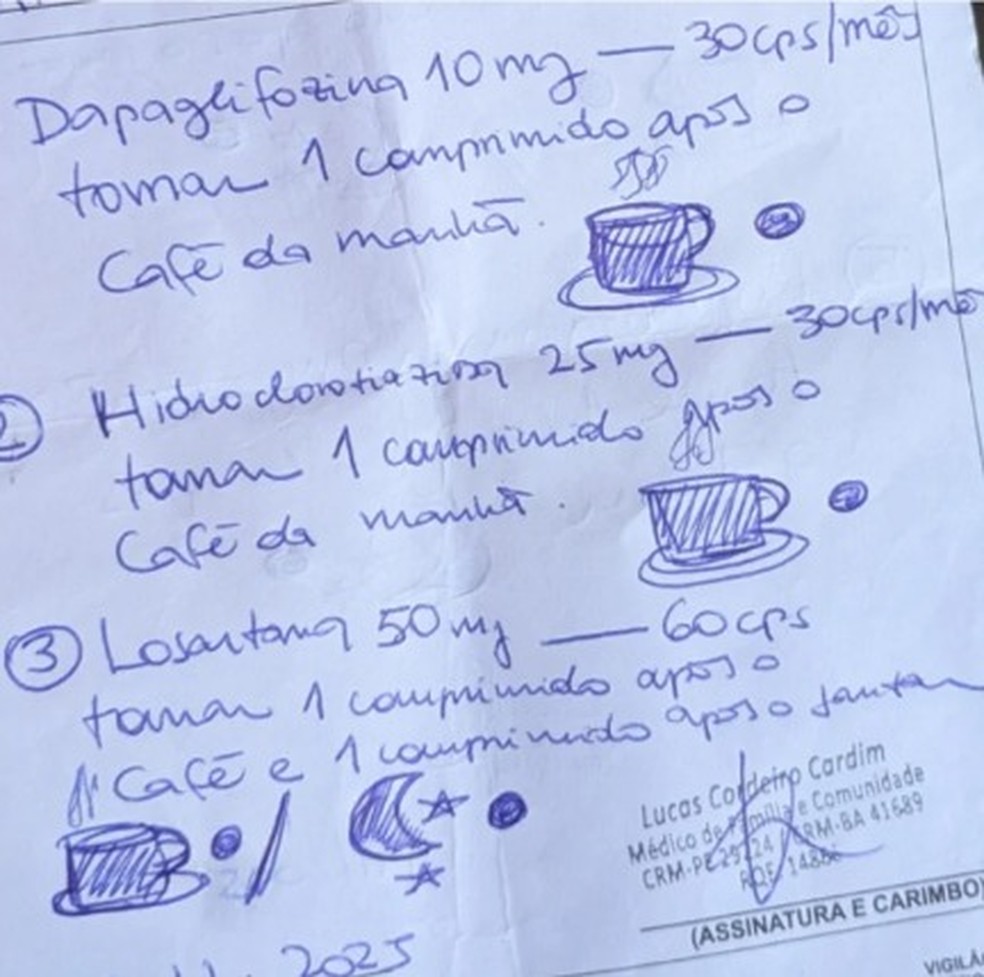 Dapaglifozina 10mg — 30cps/mês
tomar 1 comprimido após o
Café da manhã.
2 Hidroclorotiazida 25mg — 30cps/mê
tomar 1 comprimido após o
Café da manhã.
3 Losartana 50mg — 60cps
tomar 1 comprimido após o
Café e 1 comprimido após o jantar
Lucas Cordeiro Cardim
Médico de Família e Comunidade
CRM-PE 29124 RM-BA 41689
RQE
(ASSINATURA E CARIMBO)
2025
VIGILÂ